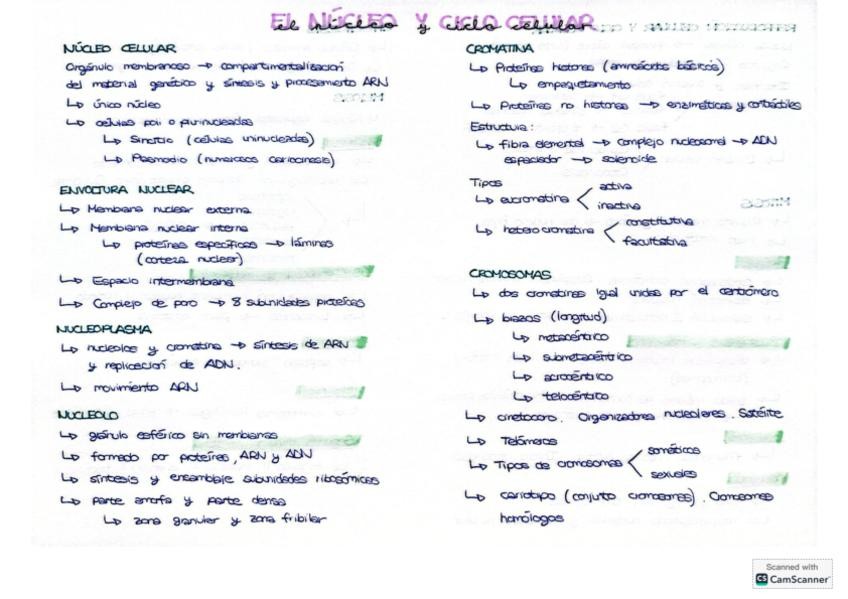 EL NÚCLEO Y CICLO CELULAR
el núcleo y ciclo celular
NÚCLEO CELULAR
Orgánulo membranoso → compartimentalización
del material genético y síntesis y procesamiento ARN
↳ único núcleo
↳ células poli o plurinucleadas
↳ Sincitio (células uninucleadas)
↳ Plasmodio (numerosas cariocinesis)
ENVOLTURA NUCLEAR
↳ Membrana nuclear externa
↳ Membrana nuclear interna
↳ proteínas específicas → láminas
(corteza nuclear)
↳ Espacio intermembrana
↳ Complejo de poro → 8 subunidades proteicas
NUCLEOPLASMA
↳ nucleolos y cromatina → síntesis de ARN
y replicación de ADN.
↳ movimiento ARN
NUCLEOLO
↳ gránulo esférico sin membranas
↳ formado por proteínas, ARN y ADN
↳ síntesis y ensamblaje subunidades ribosómicas
↳ parte amorfa y parte densa
↳ zona granular y zona fribilar
CROMATINA
↳ Proteínas histonas (aminoácidos básicos)
↳ empaquetamiento
↳ Proteínas no histonas → enzimáticas y contráctiles
Estructura:
↳ fibra elemental → complejo nucleosomal → ADN
espaciador → solenoide
Tipos
↳ eucromatina < activa
inactiva
↳ heterocromatina < constitutiva
facultativa
CROMOSOMAS
↳ dos cromatinas igual unidas por el centrómero
↳ brazos (longitud)
↳ metacéntrico
↳ submetacéntrico
↳ acrocéntrico
↳ telocéntrico
↳ cinetocoro. Organizadores nucleolares. Satélite
↳ Telómeros
↳ Tipos de cromosomas < somáticos
sexuales
↳ cariotipo (conjunto cromosomas). Cromosomas
homólogos
Scanned with
CS CamScanner